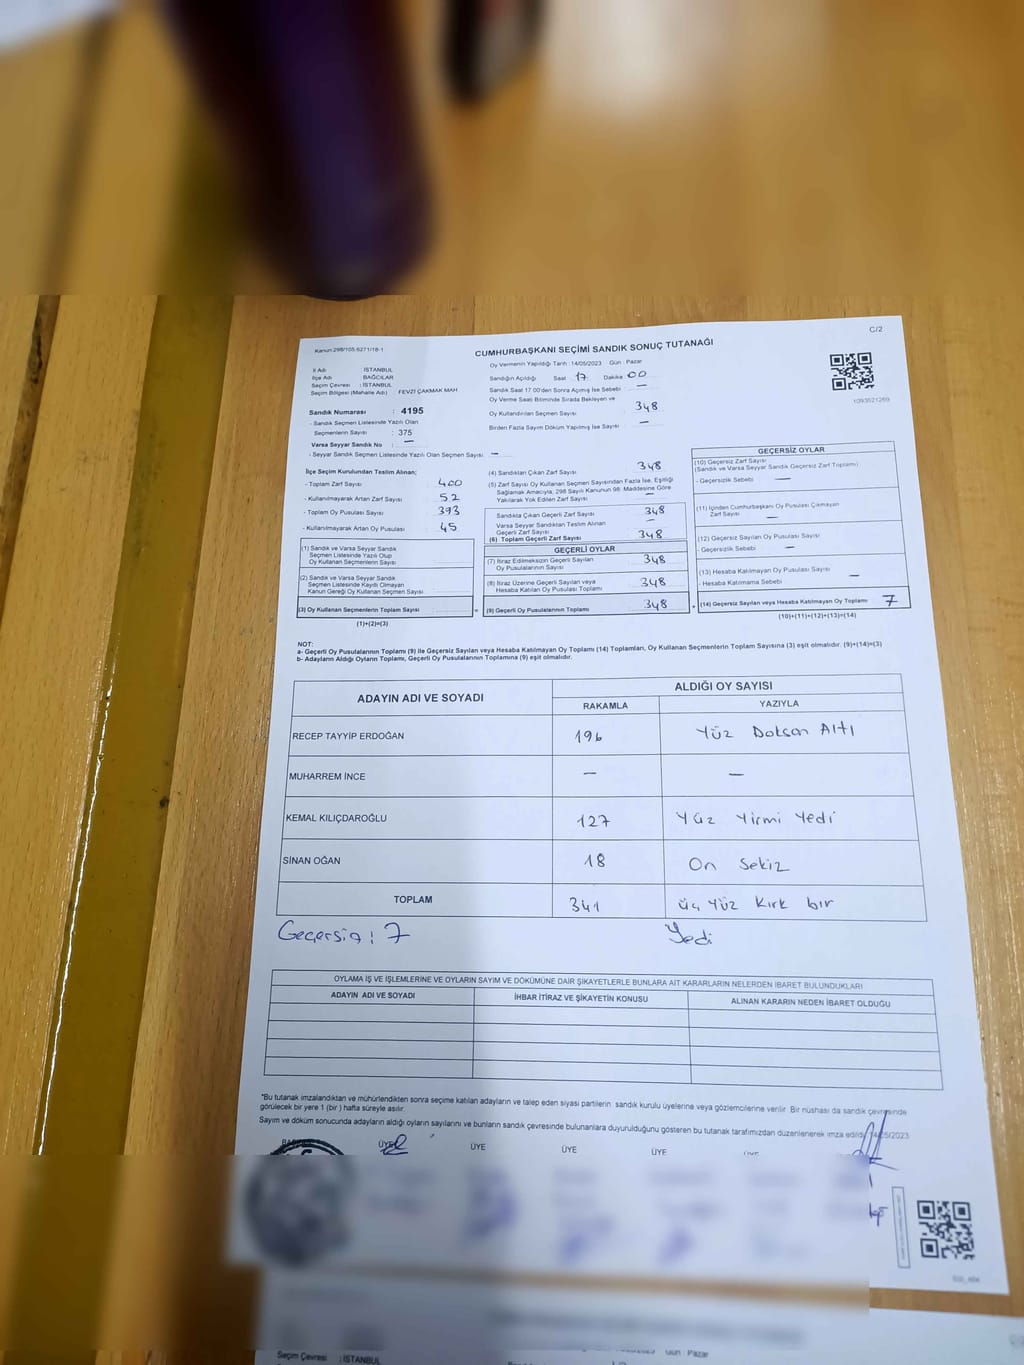 C/2
Kanun:298/105.6271/18-1
CUMHURBAŞKANI SEÇİMİ SANDIK SONUÇ TUTANAĞI
İl Adı : İSTANBUL
İlçe Adı : BAĞCILAR
Seçim Çevresi : İSTANBUL
Seçim Bölgesi (Mahalle Adı) : FEVZİ ÇAKMAK MAH
Oy Vermenin Yapıldığı Tarih :14/05/2023 Gün : Pazar
Sandığın Açıldığı Saat 17 Dakika 00
Sandık Saat 17.00'den Sonra Açılmış İse Sebebi —
Oy Verme Saati Bitiminde Sırada Bekleyen ve
Oy Kullandırılan Seçmen Sayısı 348
Birden Fazla Sayım Döküm Yapılmış İse Sayısı : —
1093021269
Sandık Numarası : 4195
- Sandık Seçmen Listesinde Yazılı Olan
Seçmenlerin Sayısı : 375
Varsa Seyyar Sandık No : —
- Seyyar Sandık Seçmen Listesinde Yazılı Olan Seçmen Sayısı : —
İlçe Seçim Kurulundan Teslim Alınan;
- Toplam Zarf Sayısı : 400
- Kullanılmayarak Artan Zarf Sayısı : 52
- Toplam Oy Pusulası Sayısı : 393
- Kullanılmayarak Artan Oy Pusulası : 45
(1) Sandık ve Varsa Seyyar Sandık
Seçmen Listesinde Yazılı Olup
Oy Kullanan Seçmenlerin Sayısı
(2) Sandık ve Varsa Seyyar Sandık
Seçmen Listesinde Kaydı Olmayan
Kanun Gereği Oy Kullanan Seçmen Sayısı
(3) Oy Kullanan Seçmenlerin Toplam Sayısı =
(1)+(2)=(3)
(4) Sandıktan Çıkan Zarf Sayısı 348
(5) Zarf Sayısı Oy Kullanan Seçmen Sayısından Fazla İse, Eşitliği
Sağlamak Amacıyla, 298 Sayılı Kanunun 98. Maddesine Göre
Yakılarak Yok Edilen Zarf Sayısı —
Sandıkta Çıkan Geçerli Zarf Sayısı 348
Varsa Seyyar Sandıktan Teslim Alınan
Geçerli Zarf Sayısı —
(6) Toplam Geçerli Zarf Sayısı 348
GEÇERLİ OYLAR
(7) İtiraz Edilmeksizin Geçerli Sayılan
Oy Pusulalarının Sayısı 348
(8) İtiraz Üzerine Geçerli Sayılan veya
Hesaba Katılan Oy Pusulası Toplamı 348
(9) Geçerli Oy Pusulalarının Toplamı 348 +
GEÇERSİZ OYLAR
(10) Geçersiz Zarf Sayısı
(Sandık ve Varsa Seyyar Sandık Geçersiz Zarf Toplamı)
- Geçersizlik Sebebi —
(11) İçinden Cumhurbaşkanı Oy Pusulası Çıkmayan
Zarf Sayısı —
(12) Geçersiz Sayılan Oy Pusulası Sayısı
- Geçersizlik Sebebi —
(13) Hesaba Katılmayan Oy Pusulası Sayısı
- Hesaba Katılmama Sebebi —
(14) Geçersiz Sayılan veya Hesaba Katılmayan Oy Toplamı 7
(10)+(11)+(12)+(13)=(14)
NOT:
a- Geçerli Oy Pusulalarının Toplamı (9) ile Geçersiz Sayılan veya Hesaba Katılmayan Oy Toplamı (14) Toplamları, Oy Kullanan Seçmenlerin Toplam Sayısına (3) eşit olmalıdır. (9)+(14)=(3)
b- Adayların Aldığı Oyların Toplamı, Geçerli Oy Pusulalarının Toplamına (9) eşit olmalıdır.
ADAYIN ADI VE SOYADI
ALDIĞI OY SAYISI
RAKAMLA YAZIYLA
RECEP TAYYİP ERDOĞAN 196 Yüz Doksan Altı
MUHARREM İNCE — —
KEMAL KILIÇDAROĞLU 127 Yüz Yirmi Yedi
SİNAN OĞAN 18 On Sekiz
TOPLAM 341 Üç Yüz Kırk bir
Geçersiz : 7 Yedi
OYLAMA İŞ VE İŞLEMLERİNE VE OYLARIN SAYIM VE DÖKÜMÜNE DAİR ŞİKAYETLERLE BUNLARA AİT KARARLARIN NELERDEN İBARET BULUNDUKLARI
ADAYIN ADI VE SOYADI İHBAR İTİRAZ VE ŞİKAYETİN KONUSU ALINAN KARARIN NEDEN İBARET OLDUĞU
"Bu tutanak imzalandıktan ve mühürlendikten sonra seçime katılan adayların ve talep eden siyasi partilerin sandık kurulu üyelerine veya gözlemcilerine verilir. Bir nüshası da sandık çevresinde
görülecek bir yere 1 (bir ) hafta süreyle asılır.
Sayım ve döküm sonucunda adayların aldığı oyların sayılarını ve bunların sandık çevresinde bulunanlara duyurulduğunu gösteren bu tutanak tarafımızdan düzenlenerek imza edildi. 14/05/2023
ÜYE ÜYE ÜYE ÜYE
Seçim Çevresi : İSTANBUL
Gün : Pazar